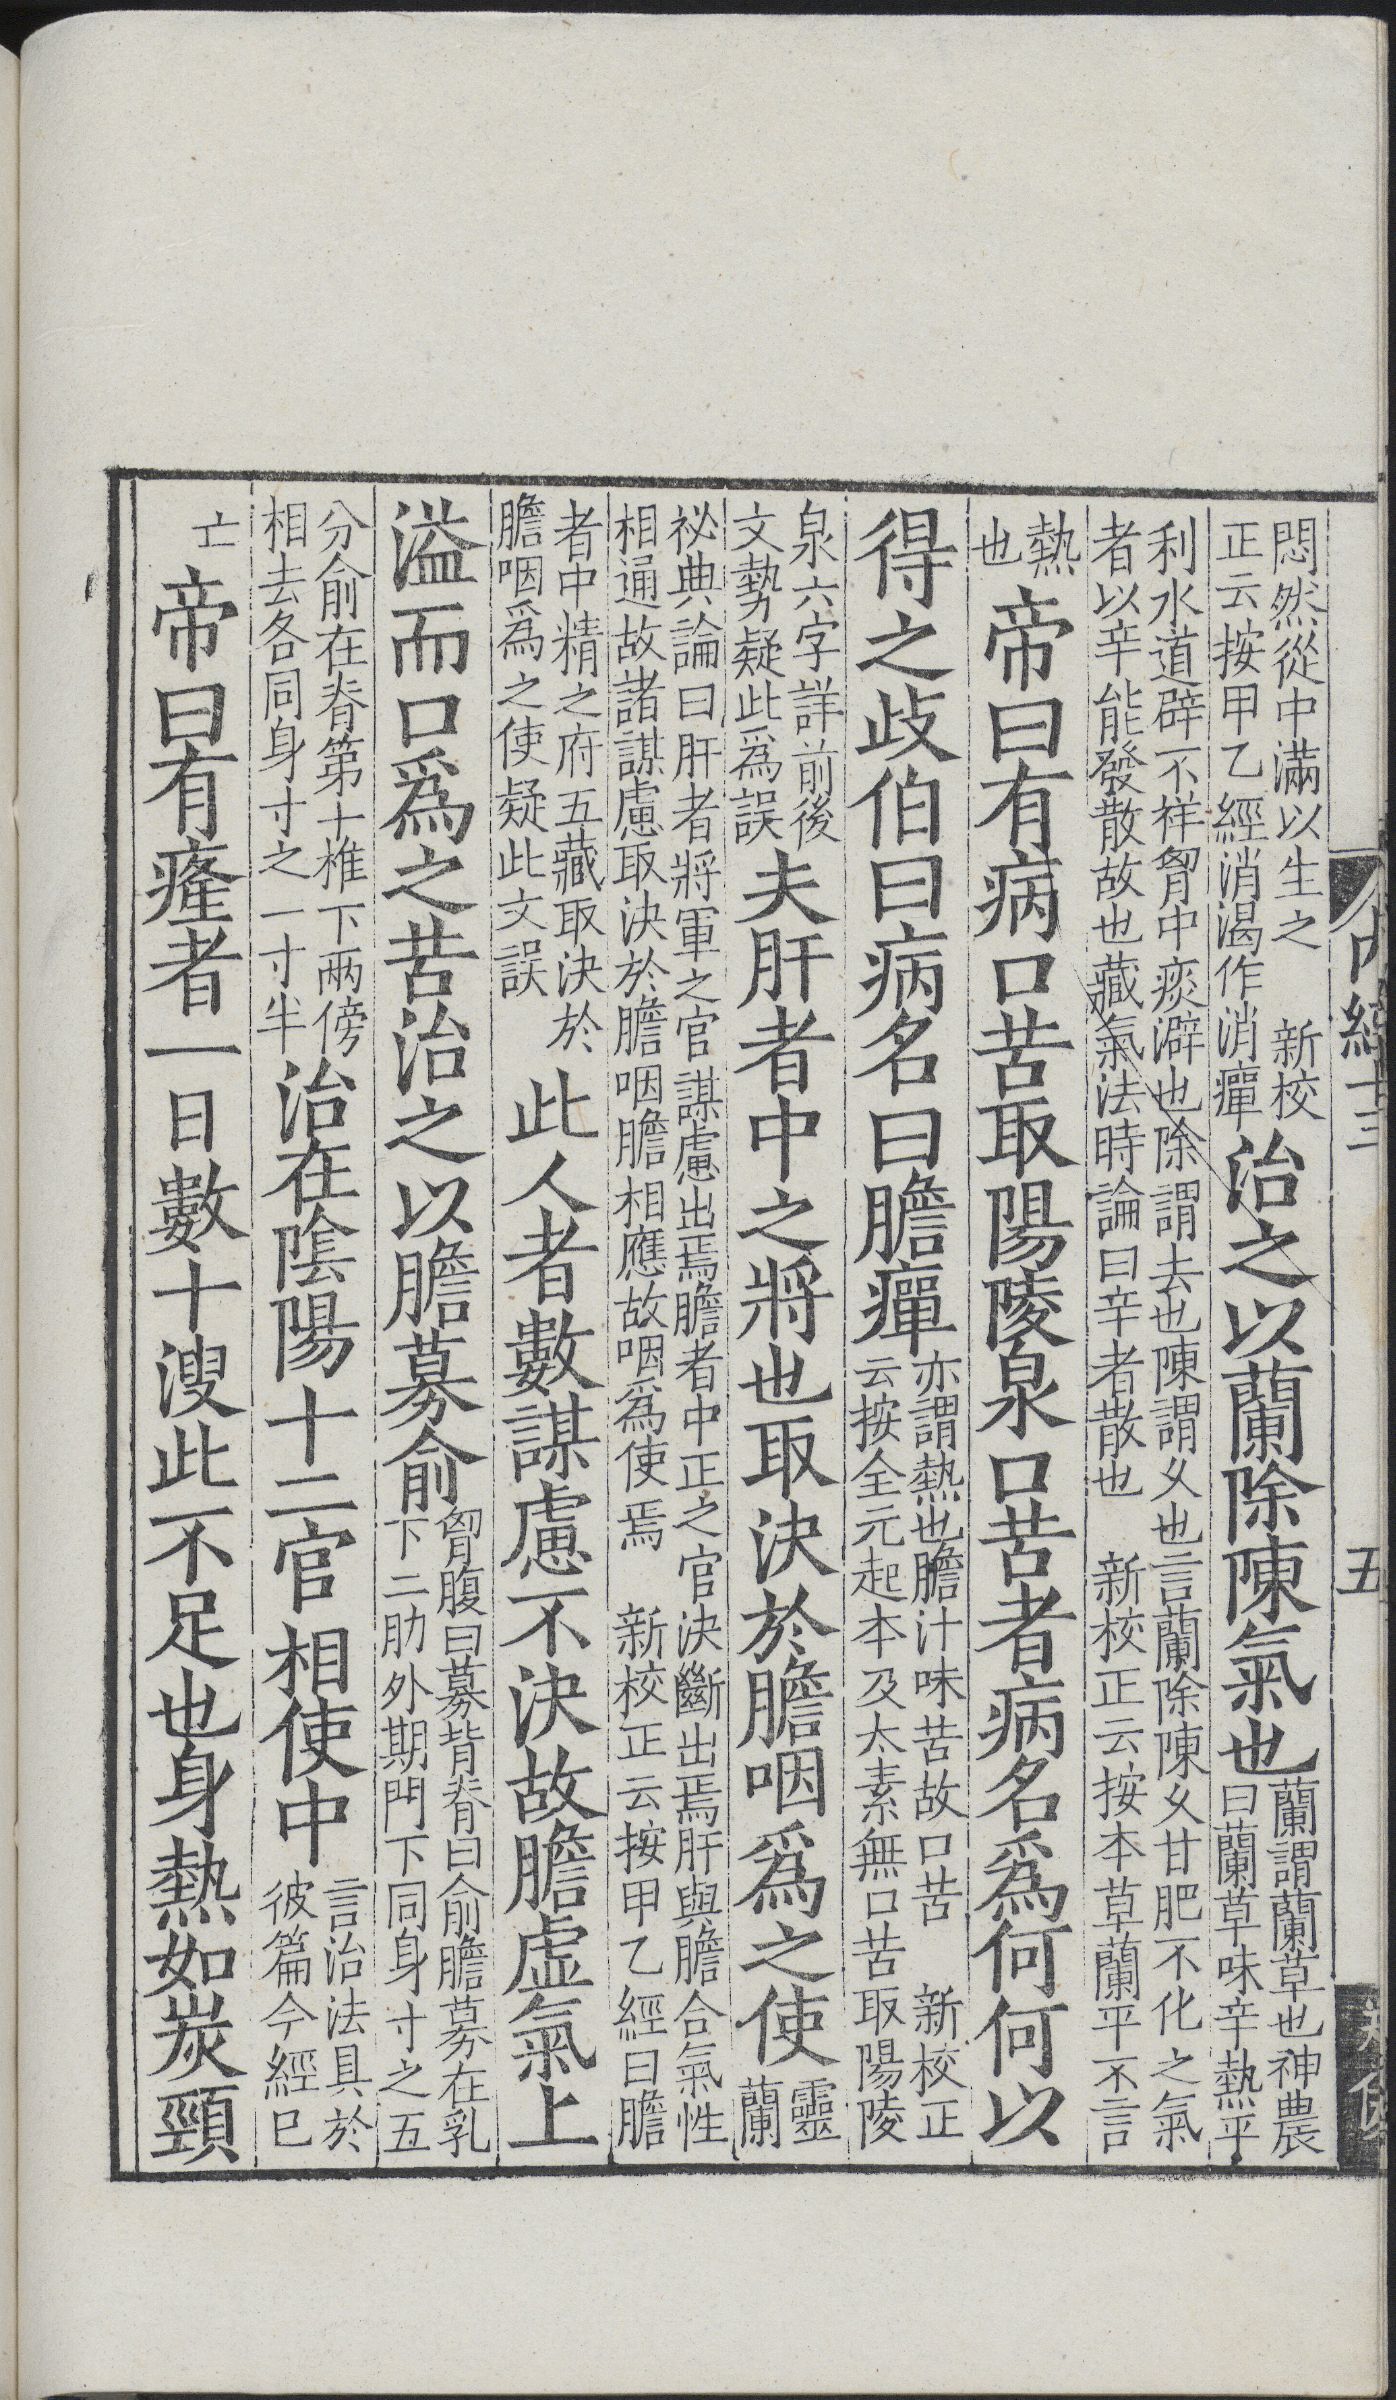 内經十三
五
悶然從中滿以生之　新校
正云按甲乙經消渴作消癉
治之以蘭除陳氣也
蘭謂蘭草也神農
曰蘭草味辛熱平
利水道辟不祥胷中痰澼也除謂去也陳謂久也言蘭除陳久甘肥不化之氣
者以辛能發散故也藏氣法時論曰辛者散也　新校正云按本草蘭平不言
熱
也
帝曰有病口苦取陽陵泉口苦者病名爲何何以
得之歧伯曰病名曰膽癉
亦謂熱也膽汁味苦故口苦　新校正
云按全元起本及太素無口苦取陽陵
泉六字詳前後
文勢疑此爲誤
夫肝者中之將也取決於膽咽爲之使
靈
蘭
祕典論曰肝者將軍之官謀慮出焉膽者中正之官決斷出焉肝與膽合氣性
相通故諸謀慮取決於膽咽膽相應故咽爲使焉　新校正云按甲乙經曰膽
者中精之府五藏取決於
膽咽爲之使疑此文誤
此人者數謀慮不決故膽虛氣上
溢而口爲之苦治之以膽募俞
胷腹曰募背脊曰俞膽募在乳
下二肋外期門下同身寸之五
分俞在脊第十椎下兩傍
相去各同身寸之一寸半
治在陰陽十二官相使中
言治法具於
彼篇今經已
亡
帝曰有癃者一日數十溲此不足也身熱如炭頸